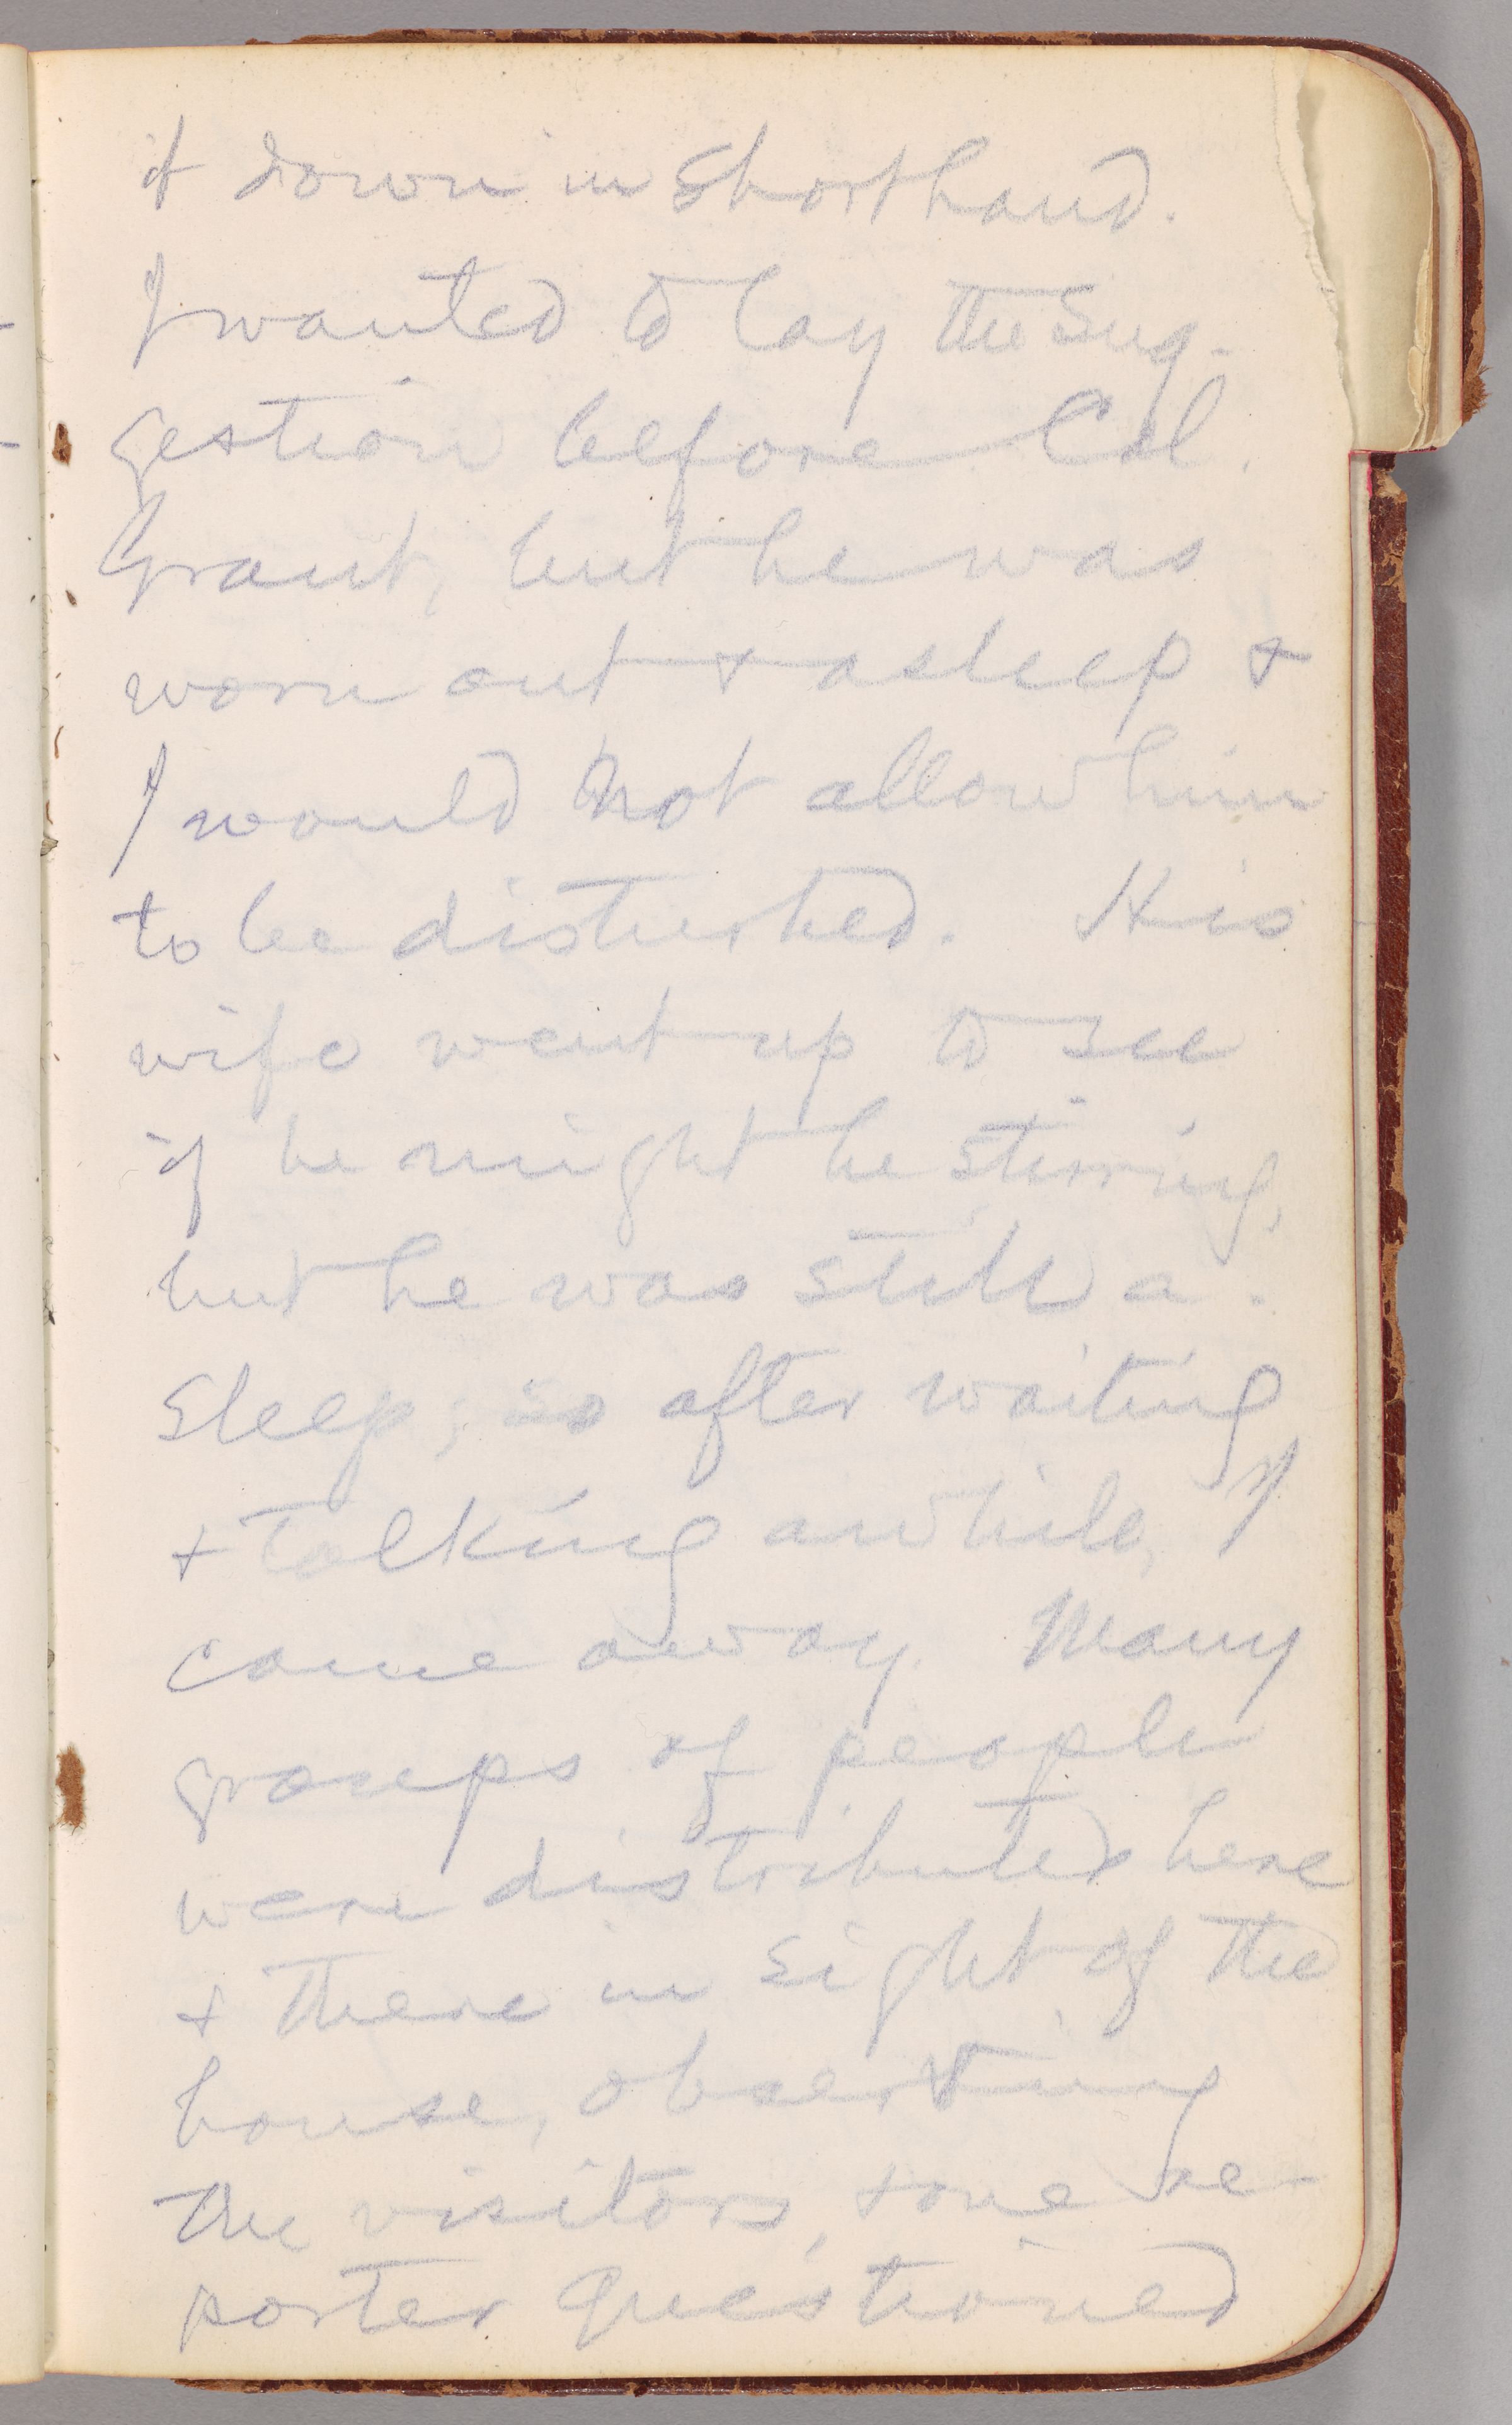 it down in shorthand.
I wanted to lay the sug-
gestion before Col.
Grant, but he was
worn out & asleep &
I would not allow him
to be disturbed. His
wife went up to see
if he might be stirring,
but he was still a-
sleep; so after waiting
& talking awhile, I
came away. Many
groups of people
were distributed here
& there in sight of the
house, observing
the visitors, & one re-
porter questioned